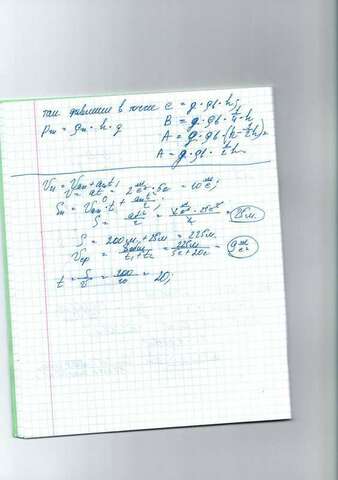 там давление в точке C = g · ρв · h;
Pт = ρт · h · g B = g · ρв · h
A = g · ρв · (h - h) =
A = g · ρв · h
Vx = V0x + axt;
V = at = 2 м/с² · 5с = 10 м/с;
Sx = V0x · t + axt²/2;
S = at²/2 = = 25м.
S = 200м + 25м = 225м.
Vср = Sобщ/t1+t2 = 225м/5с+20с = 9 м/с
t = S/v = 200/10 = 20;